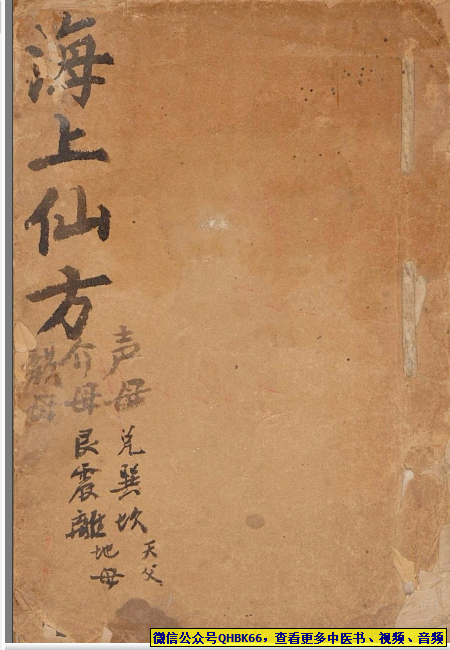 海上仙方
声母
介母
韵母
兑巽坎
天父
艮震離
地母
微信公众号QHBK66，查看更多中医书、视频、音频